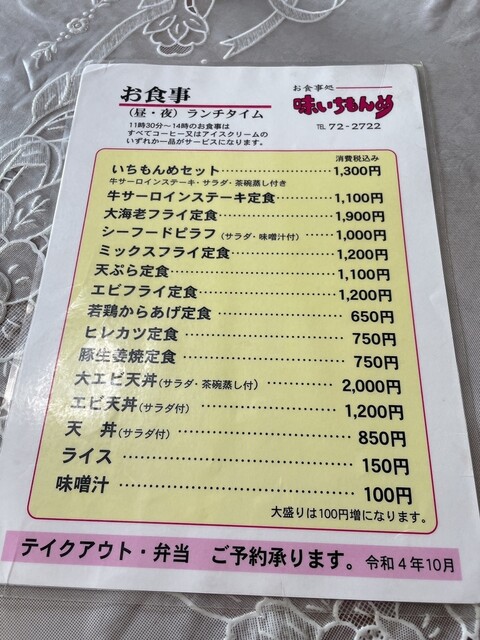 お食事
(昼・夜) ランチタイム
11時30分〜14時のお食事は
すべてコーヒー又はアイスクリームの
いずれか一品がサービスになります。
お食事処
味いちもんめ
TEL 72-2722
消費税込み
いちもんめセット……1,300円
牛サーロインステーキ・サラダ・茶碗蒸し付き
牛サーロインステーキ定食……1,100円
大海老フライ定食……1,900円
シーフードピラフ(サラダ・味噌汁付)……1,000円
ミックスフライ定食……1,200円
天ぷら定食……1,100円
エビフライ定食……1,200円
若鶏からあげ定食……650円
ヒレカツ定食……750円
豚生姜焼定食……750円
大エビ天丼(サラダ・茶碗蒸し付)……2,000円
エビ天丼(サラダ付)……1,200円
天 丼(サラダ付)……850円
ライス……150円
味噌汁……100円
大盛りは100円増になります。
テイクアウト・弁当 ご予約承ります。令和4年10月